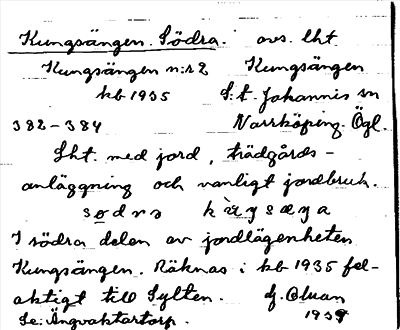 Kungsängen. Södra. avs. lht.
Kungsängen n:r 2 Kungsängen
kb 1935 S:t Johannis sn
382-384 Norrköping. Ögl.
Lht. med jord, trädgårds-
anläggning och vanligt jordbruk.
I södra delen av jordlägenheten
Kungsängen. Räknas i kb 1935 fel-
aktigt till Sylten.
Se: Ängvaktartorp. 1937